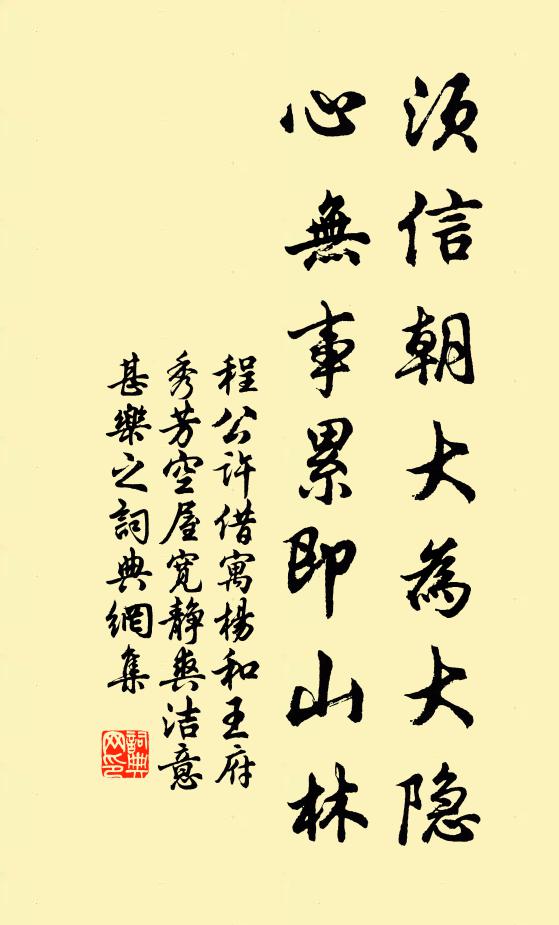 须信朝大為大隐
心無事累即山林
程公许借寓楊和王府
秀芳空屋寬静爽洁意
甚樂之詞典網集
詞典网印